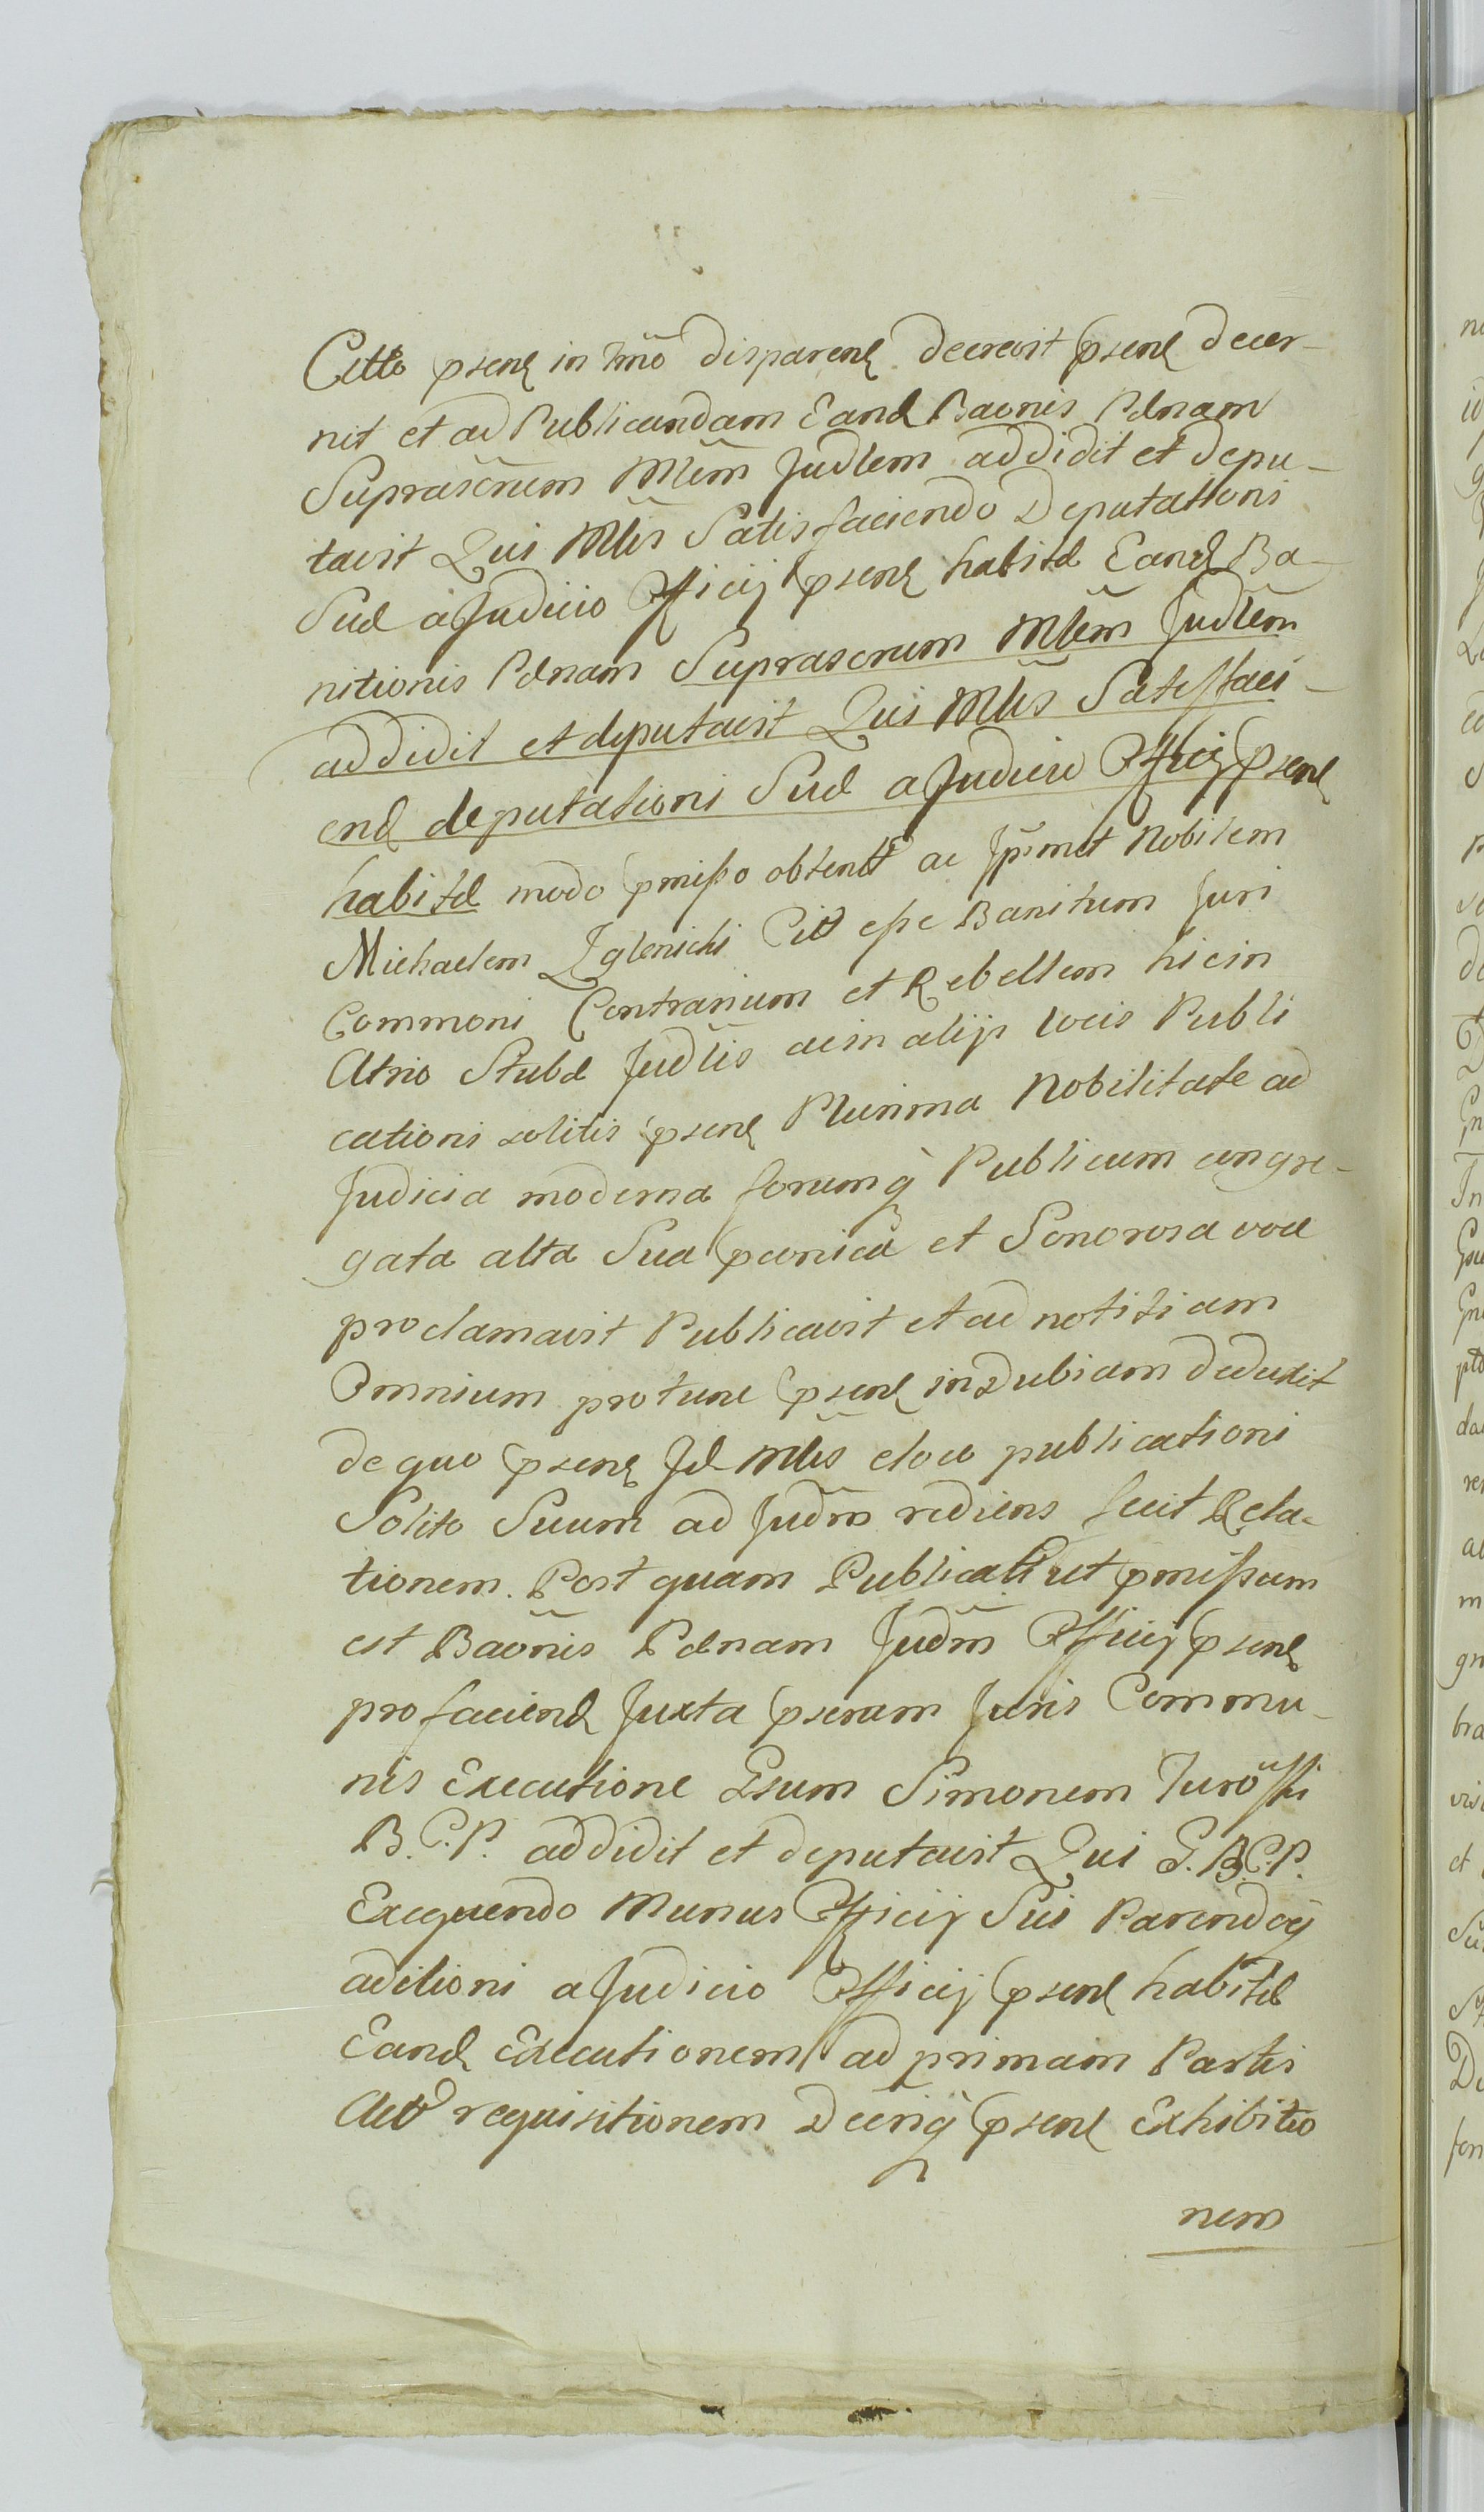 Citto psenꝫ in tm̃o disparenꝫ decrevit psenꝫ decer-
nit et ad Publicandam Eandꝫ Baõnis Pœnam
Suprascr̃um Mlẽm Judlem addidit et depu-
tavit Qui Ml̃is Satisfaciendo Deputationi
Suæ a Judicio Officij psenꝫ habitæ Eandꝫ Ba-
nitionis Pœnam Suprascrum Mlẽm Judlẽm
addidit et deputavit Qui Ml̃is Satisfaci-
endꝫ deputationi Suæ a Judicio Officij psenꝫ
habitæ modo pmisso obtentt ac Ip̃met Nobilem
Michaelem Zglenicki Citt esse Banitum Juri
Commoni Contrarium et Rebellem hicin
Atrio Stubæ Judl̃is acin alijs locis Publi
cationi solitis psenꝫ Plurima Nobilitate ad
Judicia moderna forumq̃ Publicum congre-
gata alta Sua pconica et Sonorosa voce
proclamavit Publicavit et ad notitiam
Omnium protunc psenꝫ indubiam deduxit
de quo psenꝫ Id Ml̃is eloco publicationi
Solito Suum ad Judm̃ rediens fecit Rela-
tionem. Post quam Publicatt ut pmissum
est Baõnis Pœnam Judm̃ Officij psenꝫ
pro faciendꝫ Juxta pseram Juris Commu-
nis Executione Gsum Simonem Turõsski
B. C. P. addidit et deputavit Qui G. B. C. P.
Exequendo Munus Officij Sui Parendoq̃
aditioni a Judicio Officij psenꝫ habitæ
Eandꝫ Executionem ad primam Partis
Act requisitionem Decriq̃ psenꝫ Exhibitio
nem